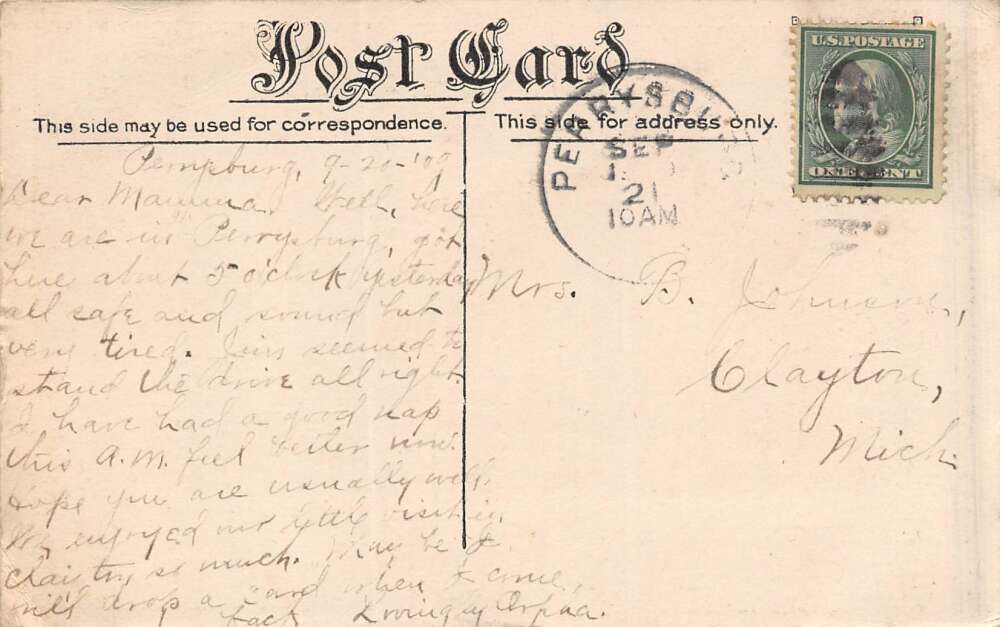 Post Card
This side may be used for correspondence.
This side for address only.
U.S. POSTAGE
ONE CENT
PERRYSBU
SEP
21
10AM
Perrysburg, 9-20-'09
Dear Mamma. Well, here
we are in Perrysburg, got
here about 5 o'clock yesterday
all safe and sound but
very tired. seemed to
stand the drive all right.
I have had a good nap
this A.M. feel better now.
Hope you are usually well.
We enjoyed our little visit in
Clayton so much. May be I
will drop a card when I come
back Lovingly Orpha.
Mrs. B. Johnson,
Clayton,
Mich.